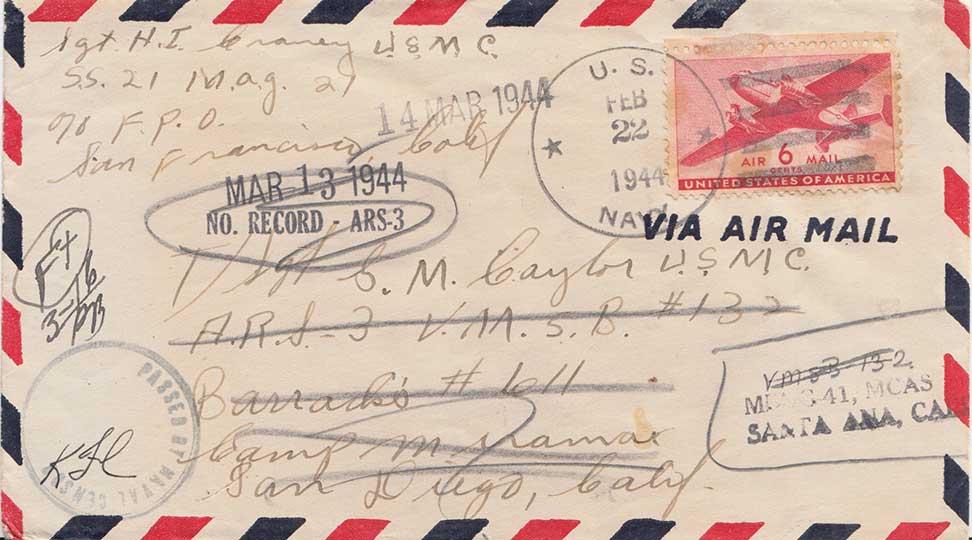 Sgt. H. I. Craney U.S.M.C.
S.S. 21 M.a.g. 21
c/o F. P. O.
San Francisco, Calif
14 MAR 1944
MAR 13 1944
NO. RECORD - ARS-3
U. S.
FEB
22
1944
NAVY
AIR 6 MAIL
CENTS
UNITED STATES OF AMERICA
VIA AIR MAIL
T/Sgt S. M. Caylor U.S.M.C.
A.R.S-3 V.M.S.B. #132
Barracks # 611
Camp Miramar
San Diego, Calif.
VMSB-132
41, MCAS
SANTA ANA, CAL
PASSED BY NAVAL CENS